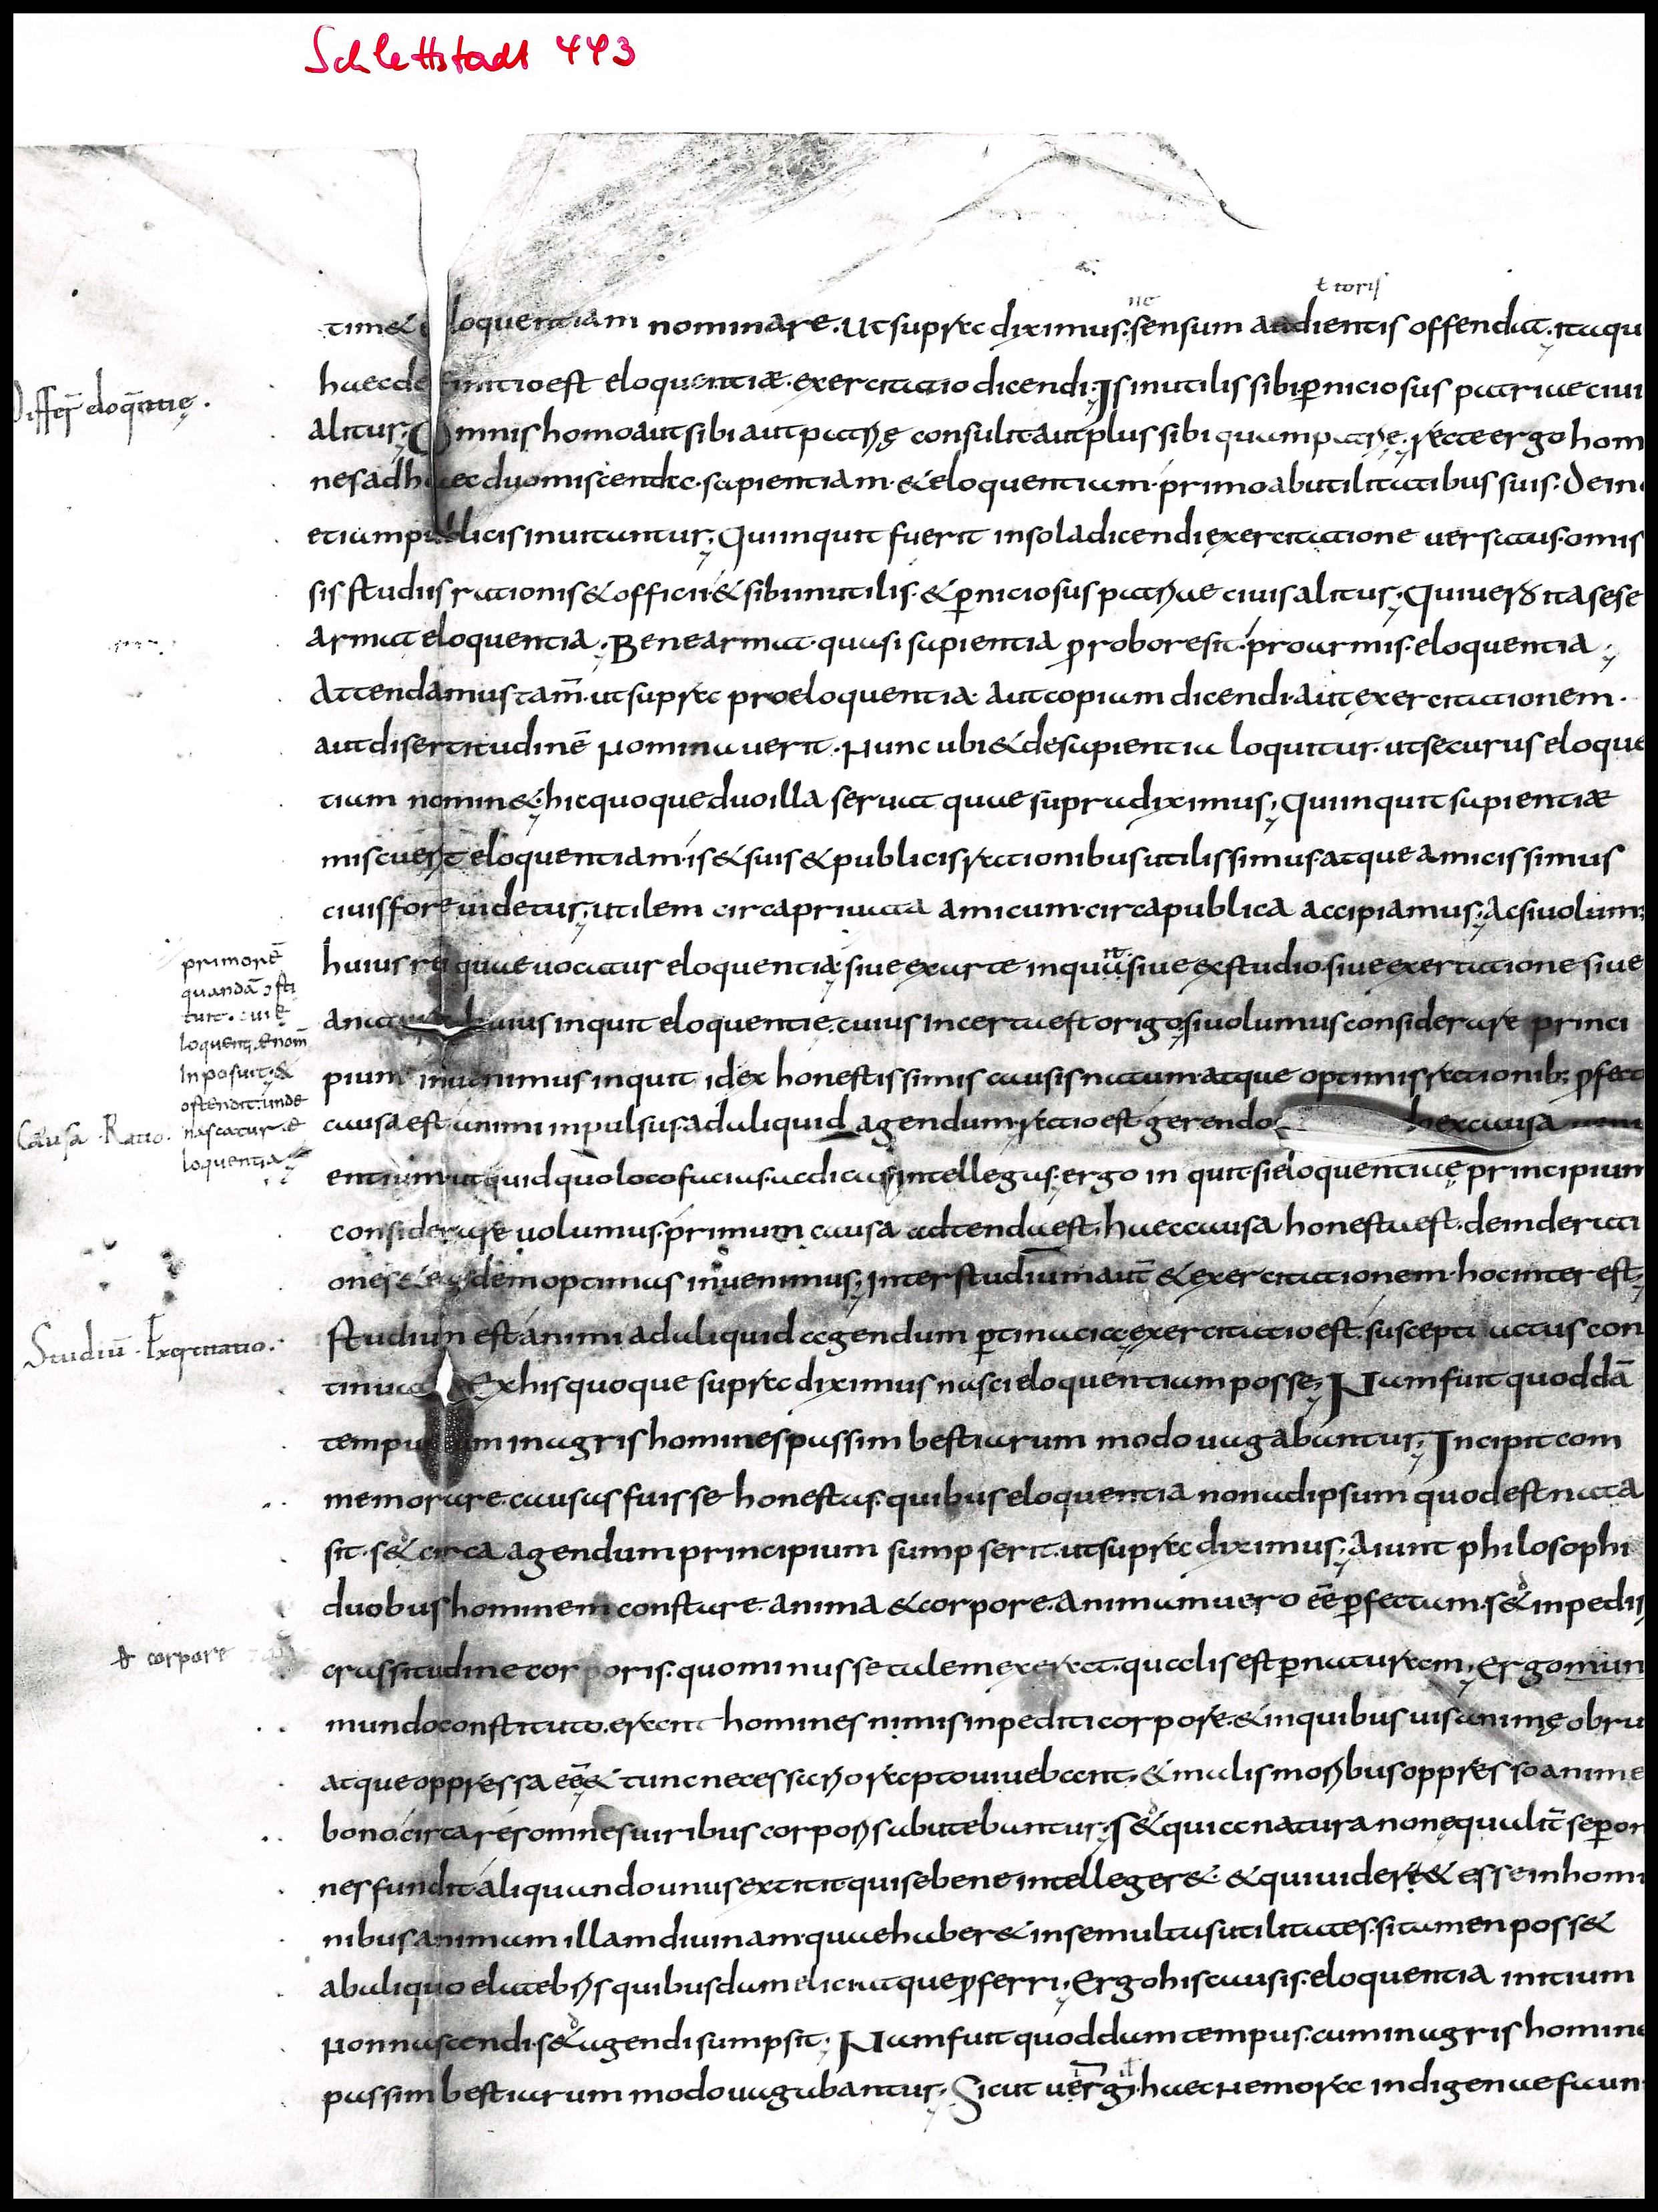 Schlettstadt 443
ne
ł toris
tim& eloquentiam nominare. ut supra diximus. sensum audientis offendat. itaqu
haec definitio est eloquentiæ. exercitatio dicendi; Is inutilis sibi p̱niciosus patriae ciui
Differ̄ eloq̄ntię.
alitur; Omnis homo aut sibi aut patrię consulit. aut plus sibi quam patrię. recte ergo hom
nes ad haec duo miscenda. sapientiam. & eloquentiam. primo ab utilitatibus suis. Dein
etiam publicis inuitantur; Qui inquit fuerit in sola dicendi exercitatione uersatus. omis
sis studiis rationis & officii. & sibi inutilis. & p̱niciosus patriae ciuis alitur; Qui uero ita sese
armat eloquentia; Bene armat. quasi sapientia p̱ robore sit. pro armis. eloquentia;
Attendamus tam̄. ut supra pro eloquentia. aut copiam dicendi. aut exercitationem.
aut disertitudinē nominauerit. Nunc ubi & de sapientia loquitur. ut securus eloque
tiam nomin&; hic quoque duo illa seruat quae supra diximus; Qui inquit sapientiæ
miscuerit eloquentiam. is & suis & publicis rationibus utilissimus atque amicissimus
ciuis fore uidetur; utilem circa priuata amicum. circa publica accipiamus; Ac si uolum;
primorē
quandā ɔsti
huius rei quae uocatur eloquentia. siue ex arte inquit. siue ex studio. siue exercitatione siue
loquentię nom̄
inposuit. &
ostendit. unde
nascatur. e
loquentia
huius inquit eloquentię. cuius incerta est origo. si uolumus considerare princi
pium inuenimus inquit id ex honestissimis causis natum atque optimis rationib; p̱fect
Causa. Ratio.
causa est animi inpulsus ad aliquid agendum. ratio est gerendo haec causa
entium. ut quid quo loco facias. ac dicas intellegas. ergo inquit si eloquentiae principium
considerare uolumus. primum causa adtenda est. haec causa honesta est. deinde rati
ones & easdem optimas inuenimus; Inter studium aut̄ & exercitationem. hoc inter est;
Studiū. Exercitatio.
studium est animi ad aliquid agendum p̱tinacia. exercitatio est. suscepti actus con
Ex his quoque supra diximus nasci eloquentiam posse; Nam fuit quoddā
in agris homines passim bestiarum modo uagabantur; Incipit com
memorare. causas fuisse honestas. quibus eloquentia non ad ipsum quod est nata
sit. s& circa agendum principium sumpserit. ut supra diximus; Aiunt philosophi
duobus hominem constare. anima & corpore. Animam uero eē p̱fectam. s& inpedi
& corpore
crassitudine corporis. quominus se talem exerat. qualis est p̱ naturam; Ergo mun
mundo constituto. erant homines nimis inpediti corpore. & in quibus uis animę obru
atque oppressa eē& tunc necessario rapto uiuebant. & malis moribus oppresso anime
bono. circa res omnes uiribus corporis abutebantur; S& quia natura non equalit̄ se p̱ om
nes fundit. aliquando unus extitit. qui se bene intelleger& & qui uider& esse in homi
nibus animam illam diuinam. quae haber& in se multas utilitates. si tamen poss&
ab aliquo elatebris quibusdam elici. atque p̱ferri; Ergo his causis. eloquentia initium
non nascendi. s& agendi sumpsit; Nam fuit quoddam tempus. cum in agris homine
passim bestiarum modo uagabantur; Sicut uerg̅. haec nemora indigenae faun